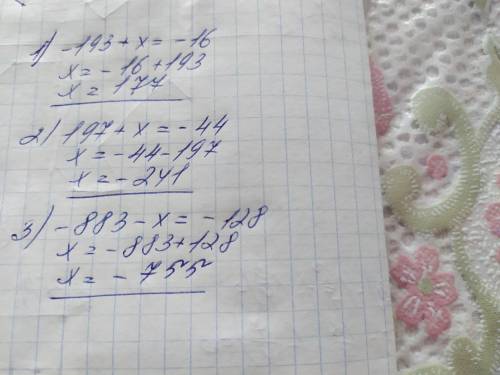 1) -193 + x = -16
x = -16 + 193
x = 177
2) 197 + x = -44
x = -44 - 197
x = -241
3) -883 - x = -128
x = -883 + 128
x = -755